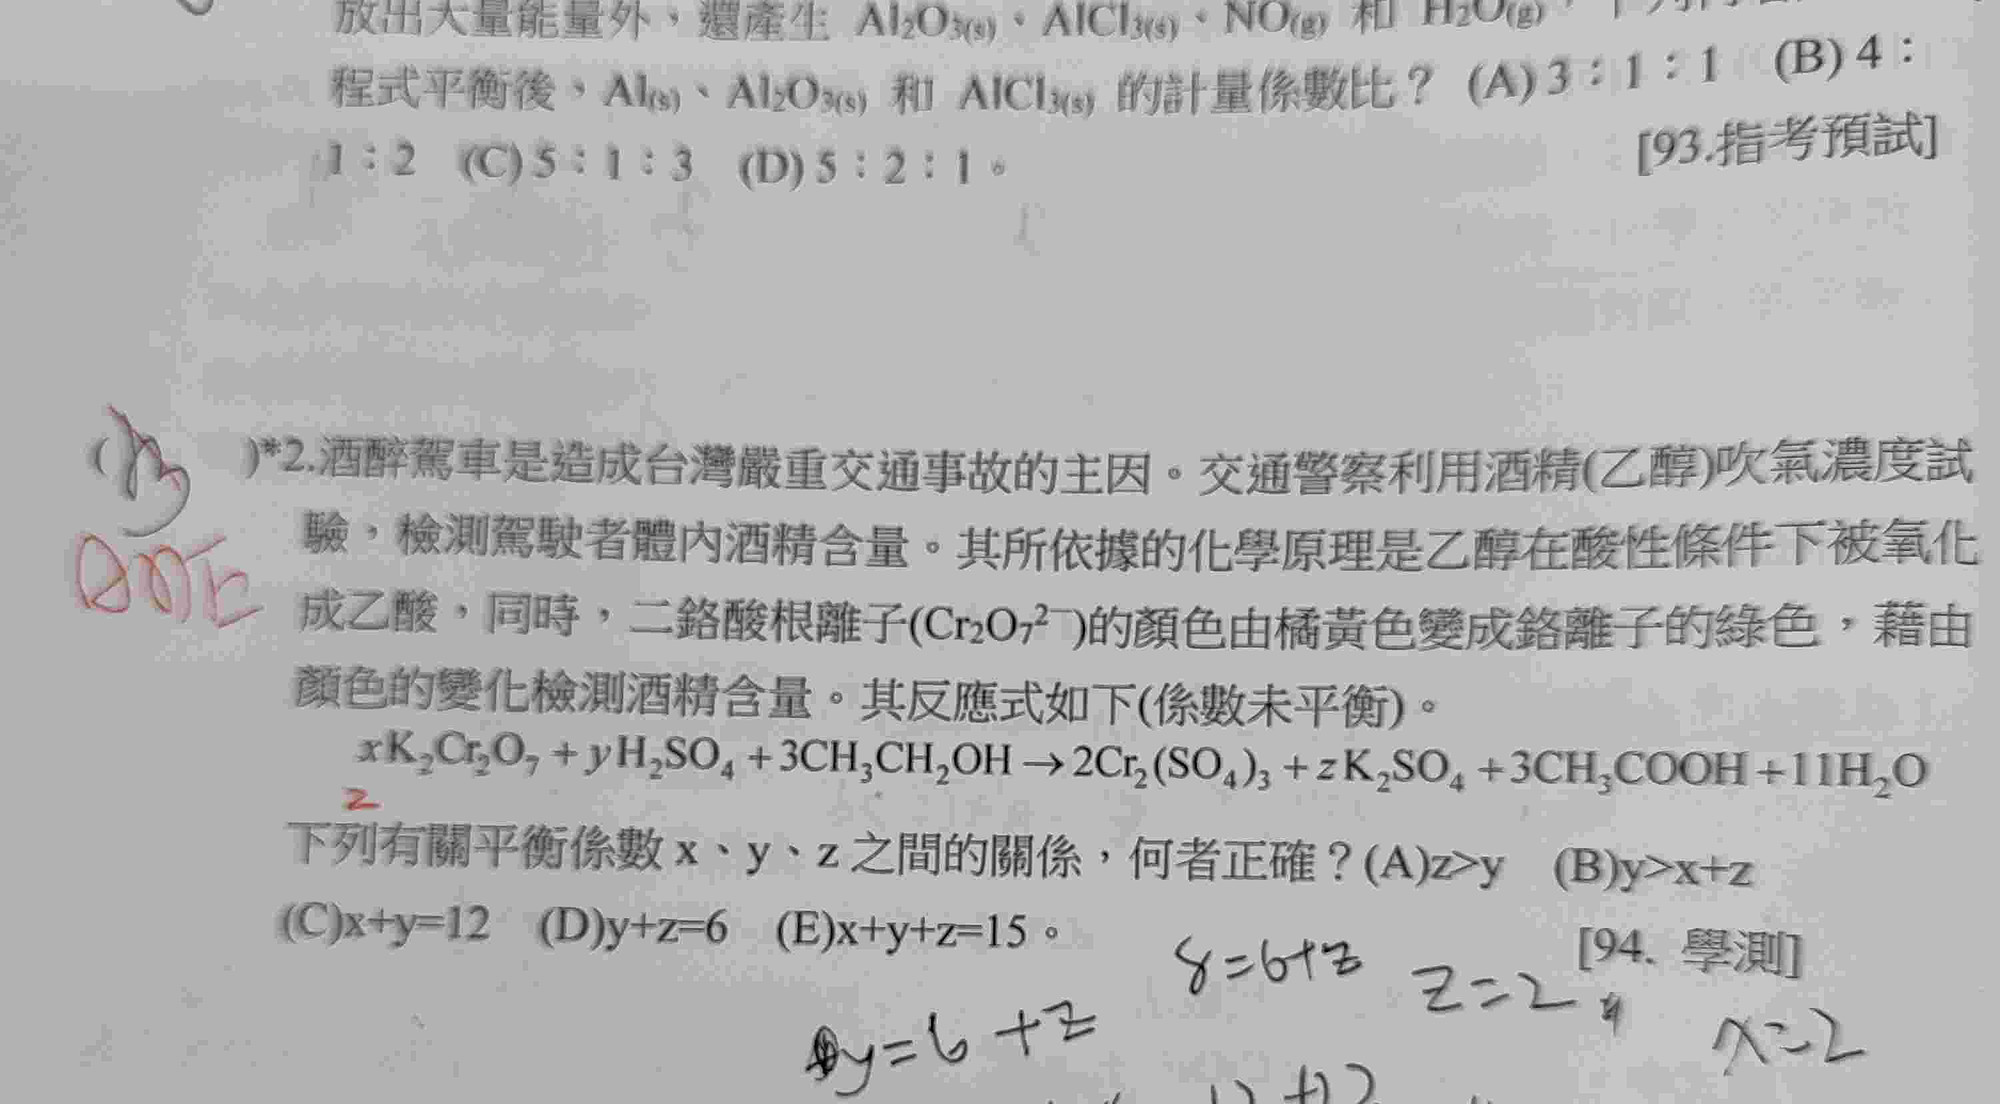 放出大量能量外、還產生 Al₂O₃(s)、AlCl₃(s)、NO(g) 和 H₂O(g)，下列
程式平衡後，Al(s)、Al₂O₃(s) 和 AlCl₃(s) 的計量係數比？ (A) 3：1：1 (B) 4：
1：2 (C) 5：1：3 (D) 5：2：1。
[93.指考預試]
( )*2.酒醉駕車是造成台灣嚴重交通事故的主因。交通警察利用酒精(乙醇)吹氣濃度試
驗，檢測駕駛者體內酒精含量。其所依據的化學原理是乙醇在酸性條件下被氧化
成乙酸，同時，二鉻酸根離子(Cr₂O₇²⁻)的顏色由橘黃色變成鉻離子的綠色，藉由
顏色的變化檢測酒精含量。其反應式如下(係數未平衡)。
xK₂Cr₂O₇ + yH₂SO₄ + 3CH₃CH₂OH → 2Cr₂(SO₄)₃ + zK₂SO₄ + 3CH₃COOH + 11H₂O
2
下列有關平衡係數 x、y、z 之間的關係，何者正確？(A)z>y (B)y>x+z
(C)x+y=12 (D)y+z=6 (E)x+y+z=15。
[94. 學測]
8=6+z
z=2
x=2
y=6+z